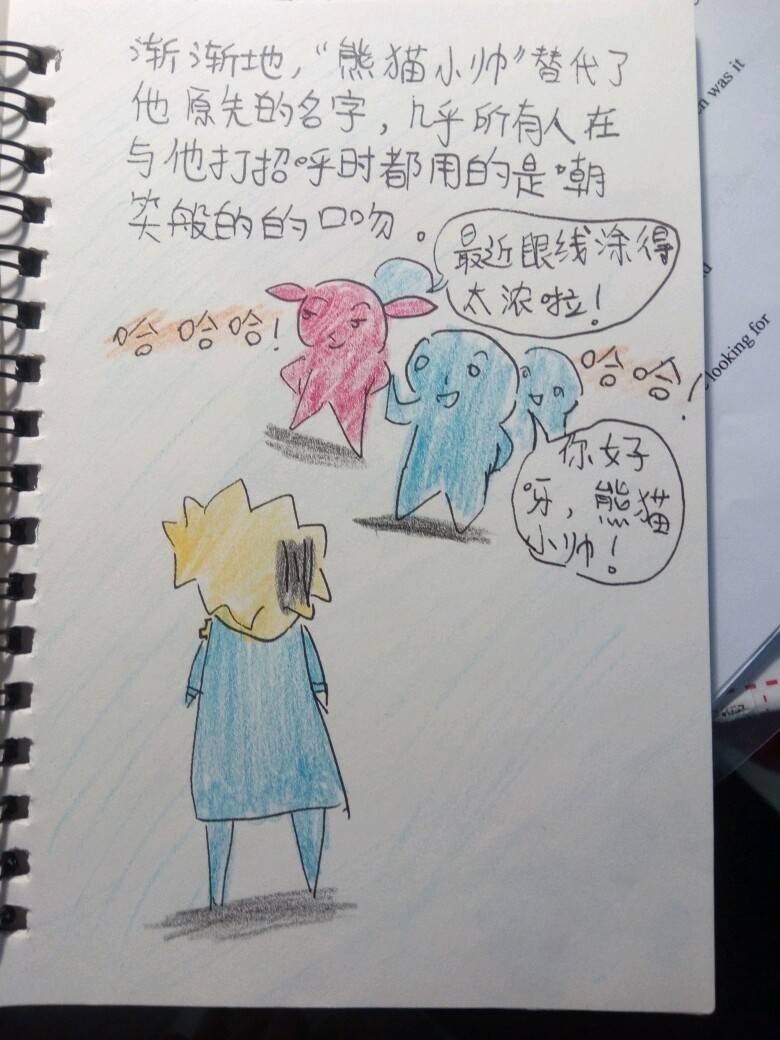 渐渐地，“熊猫小帅”替代了
他原先的名字，几乎所有人在
与他打招呼时都用的是嘲
笑般的的口吻。
最近眼线涂得
太浓啦！
哈哈哈！
哈哈！
你好
呀，熊猫
小帅！
n was it
looking for